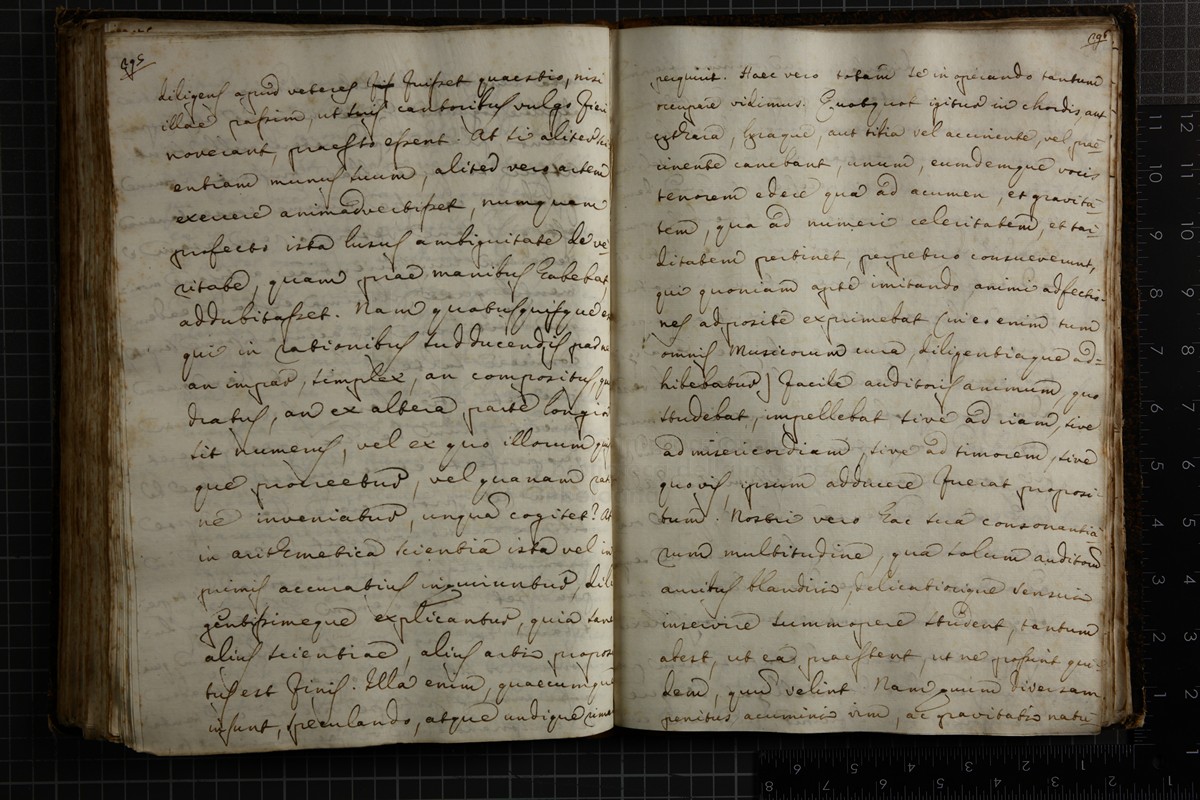 395
diligens apud veteres fuisset quaestio, nisi
illae passim, ut suis cantoribus vulgo
noverant, praesto essent. At si aliter sci-
entiam munus suum, aliter vero artem
exercere animadvertisset, numquam
profecto ista lusus ambiguitate de ve-
ritate, quam prae manibus habebat,
addubitasset. Nam quotusquisque e
qui in rationibus subducendis par
an impar, simplex, an compositus, qua
dratus, an ex altera parte longior
sit numerus, vel ex quo illorum quis
que procreetur, vel quanam rati
ne inveniatur, unquam cogitet? At
in arithmetica scientia ista vel in
primis accuratius inquiruntur, dili
gentissimeque explicantur, quia sane
alius scientiae, alius artis proposi
tus est finis. Illa enim, quaecumque
insunt, speculando, atque undique rima
396
perquirit. Haec vero totam se in operando tantum
occupare vidimus. Quotquot igitur in chordis, aut
cythara, lyraque, aut tibia vel accinente, vel prae-
cinente canebant, unum, eumdemque vocis
tenorem edere qua ad acumen, et gravita-
tem, qua ad numeri celeritatem, et tar-
ditatem pertinet, perpetuo consueverunt,
qui quoniam apte imitando animi adfectio-
nes adposite exprimebat (in eo enim tum
omnis Musicorum cura, diligentiaque ad-
hibebatur) facile auditoris animum, quo
studebat, impellebat sive ad iram, sive
ad misericordiam, sive ad timorem, sive
quovis ipsum adducere fuerat proposi-
tum. Nostri vero hac sua consonantia
rum multitudine, qua solum auditorum
auribus blandiri, delicatiorique sensui
inservire summopere student, tantum
abest, ut ea praestent, ut ne possint qui-
dem, quum velint. Nam quum diversam
penitus acuminis vim, ac gravitatis natu-